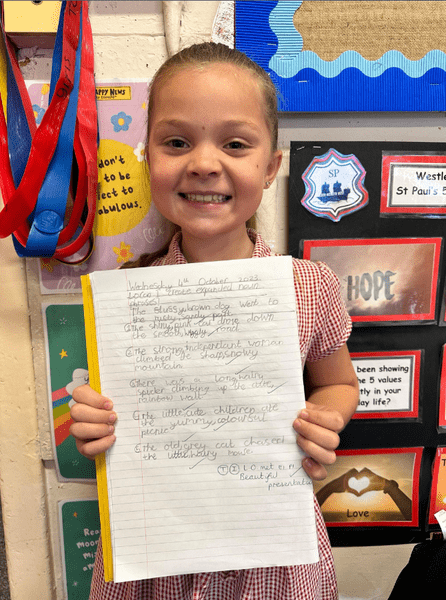 HAPPY NEWS
Don't
to be
ect to
fabulous.
SP
Westle
St Paul's 5
HOPE
been showing
e 5 values
tly in our
day life?
Love
Wednesday 4th October 2023
LO: can I create expanded noun
phrases
The fluffy brown dog went to
the nutty, sandy park
the shiny, pink car drove down
the smooth road
2. the strong, independent woman
climbed the sharp, snowy
mountain
3. there was a long, hairy
spider climbing up the
rainbow wall
4. the little, cute children ate
the yummy, colourful
picnic
5. the old, grey cat chased
the little, hairy mouse
TI LO met
Beautiful
presentation